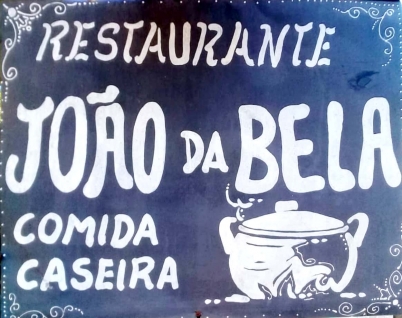 RESTAURANTE
JOÃO DA BELA
COMIDA
CASEIRA